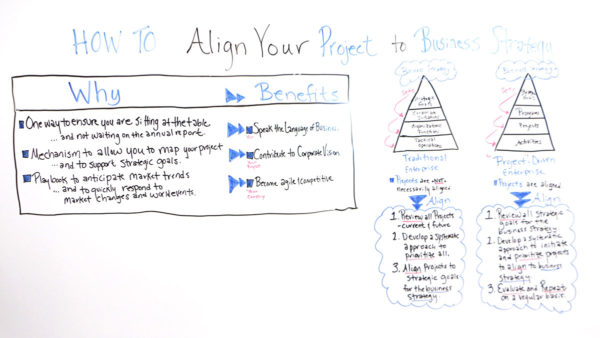 HOW TO Align Your Project to Business Strategy
Why
Benefits
One way to ensure you are sitting at the table
... and not waiting on the annual report.
Speak the Language of Business
Mechanism to allow you to map your project
... and to support strategic goals.
Contribute to Corporate Vision
Playbook to anticipate market trends
... and to quickly respond to
market changes and world events.
Become agile/competitive
Business Strategy
Strategic
Goals
Traditional
Enterprise
Projects are not
necessarily aligned
Align
1. Review all Projects
- current & future
2. Develop a systematic
approach to
prioritize all.
3. Align Projects to
strategic goals
for the business
strategy
Business Strategy
Programs
Projects
Activities
Project-Driven
Enterprise
Projects are aligned
Align
1. Review all strategic
goals for the
business strategy
2. Develop a systematic
approach to initiate
and prioritize projects
to align to business
strategy
3. Evaluate and Repeat
on a regular basis